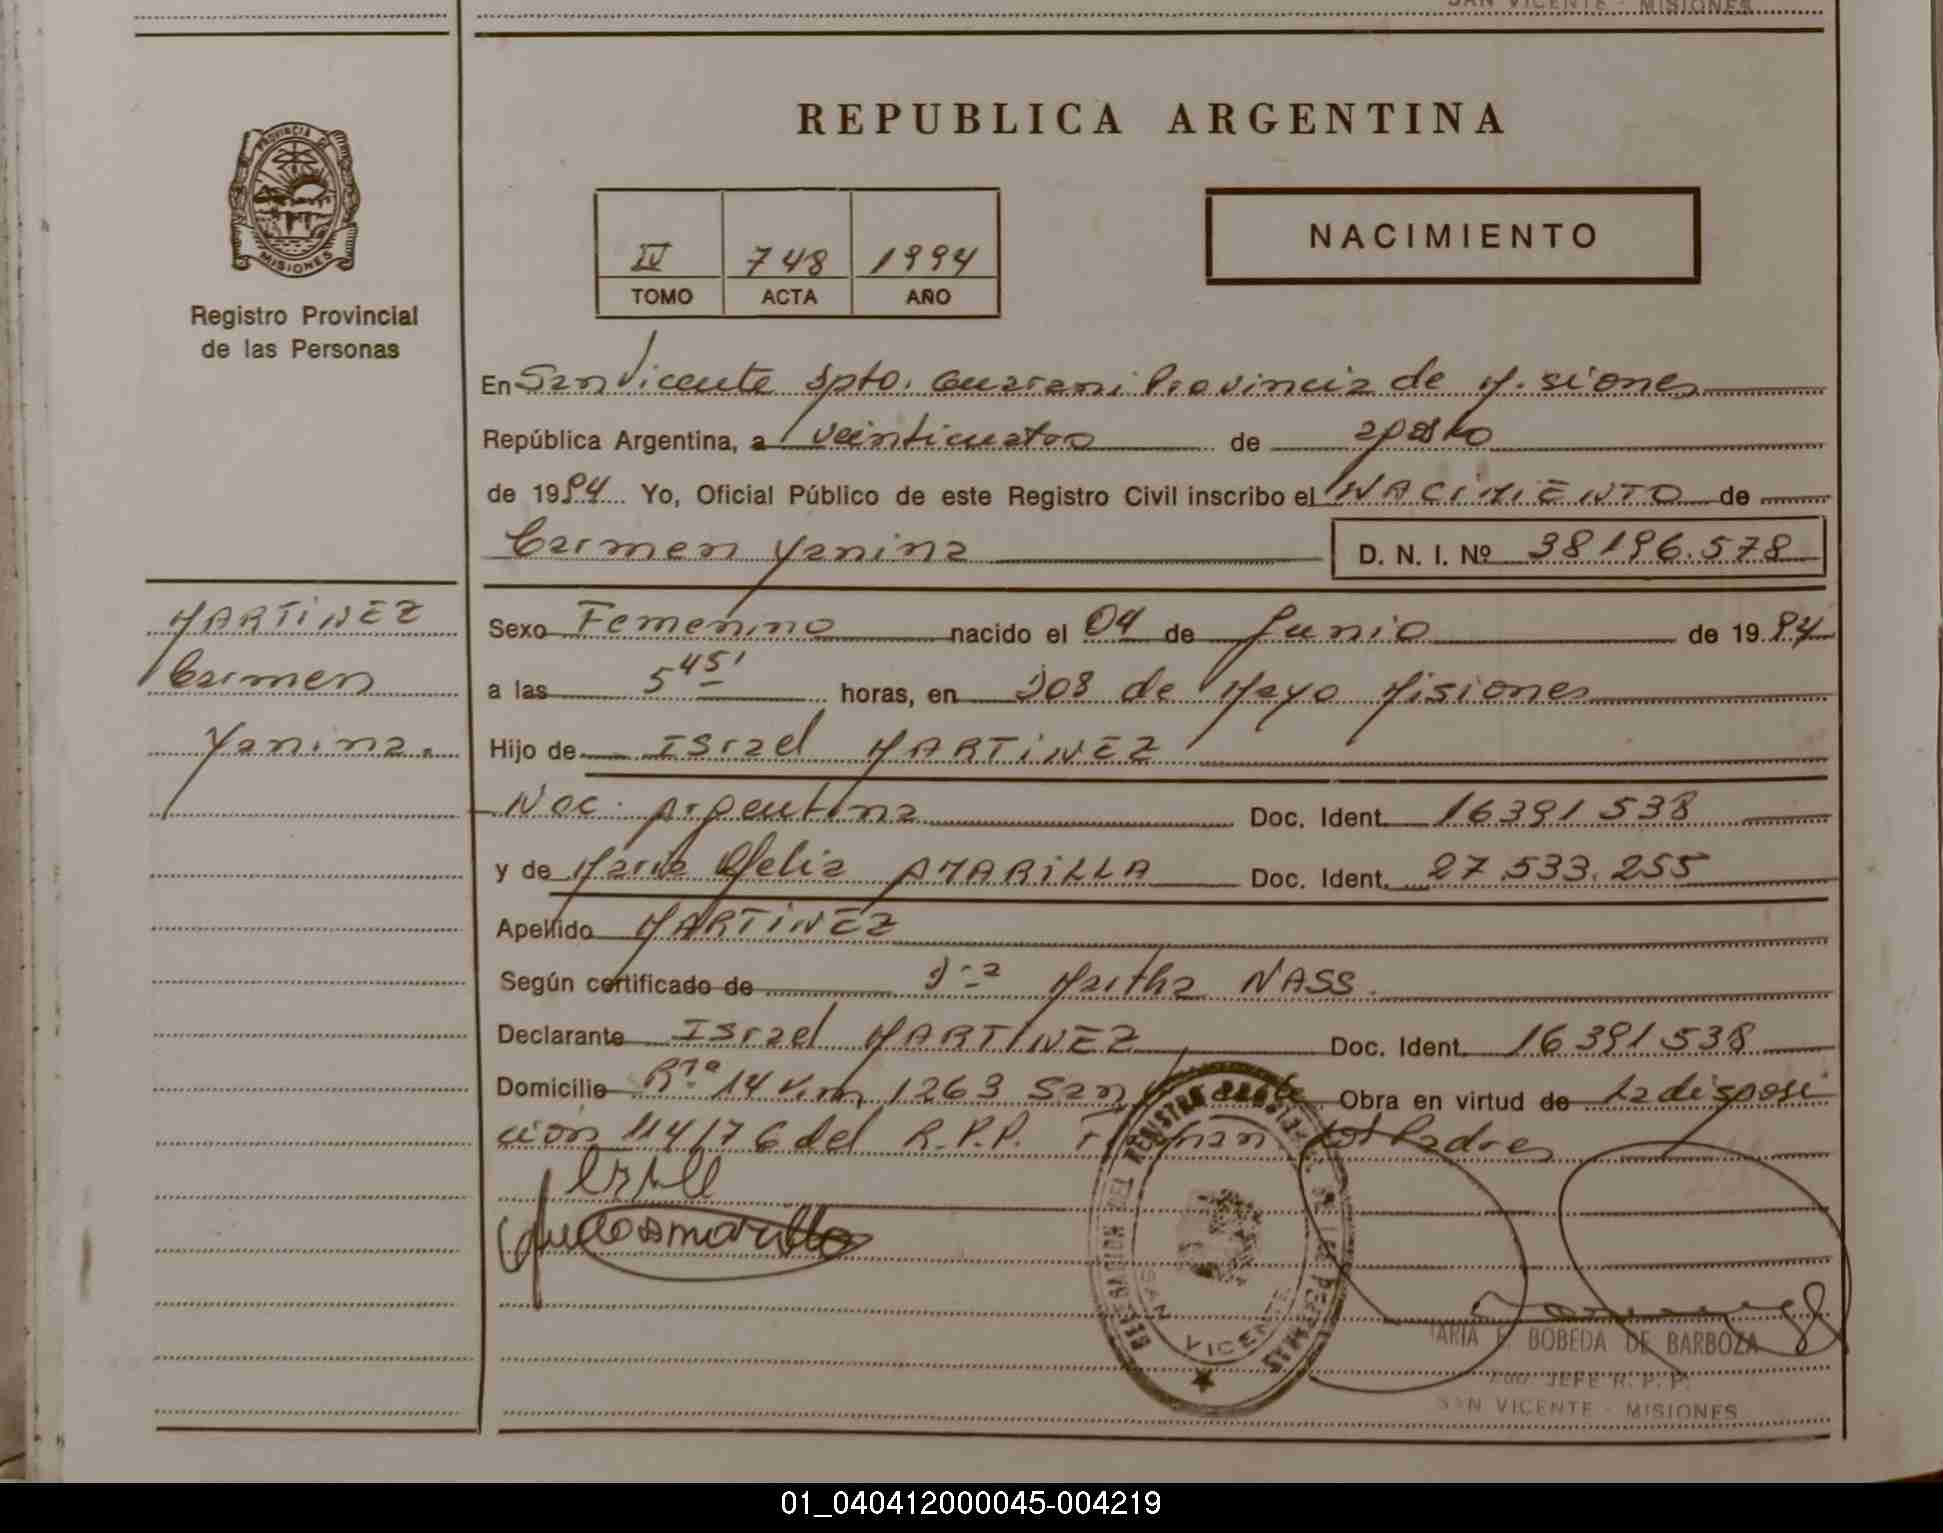 SAN VICENTE - MISIONES
REPUBLICA ARGENTINA
PROVINCIA DE
MISIONES
Registro Provincial
de las Personas
IV 748 1994
TOMO ACTA AÑO
NACIMIENTO
En San Vicente Dpto. Guarani Provincia de Misiones
República Argentina, a veinticuatro de agosto
de 1994 Yo, Oficial Público de este Registro Civil inscribo el NACIMIENTO de
Carmen Yanina D. N. I. Nº 38196.578
MARTINEZ
Carmen
Yanina.
Sexo Femenino nacido el 04 de Junio de 1994
a las 5 45' horas, en Dos de Mayo Misiones
Hijo de Israel MARTINEZ
Nac. Argentina Doc. Ident. 16391538
y de Maria Ofelia AMARILLA Doc. Ident. 27.533.255
Apellido MARTINEZ
Según certificado de Dra Martha NASS.
Declarante Israel MARTINEZ Doc. Ident. 16391538
Domicilio Rta 14 Km 1263 San Vicente Obra en virtud de La disposi
cion 114/76 del R.P.P. Firman los Padres
DELEGACION DEL REGISTRO PROVINCIAL DE LAS PERSONAS
SAN VICENTE
MARIA E. BOBEDA DE BARBOZA
JEFE R. P. P.
SAN VICENTE - MISIONES
01_040412000045-004219